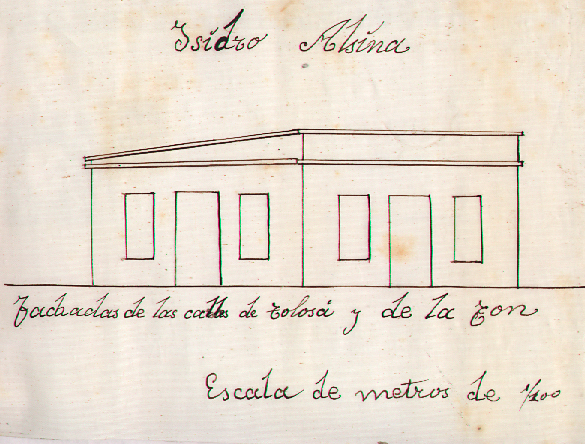 Isidro Alsina
Fachadas de las calles de Tolosá y de la Fon
Escala de metros de 1/100